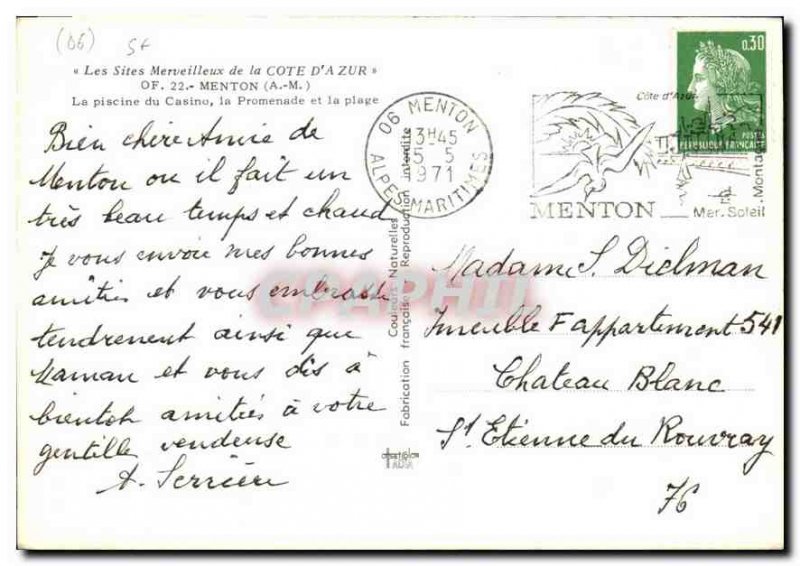 (06) St
« Les Sites Merveilleux de la COTE D'AZUR »
OF. 22.- MENTON (A.-M.)
La piscine du Casino, la Promenade et la plage
Bien chère Amie de
Menton ou il fait un
très beau temps et chaud
je vous envoie mes bonnes
amitiés et vous embrasse
tendrement ainsi que
Maman et vous dis à
bientot amitiés à votre
gentille vendeuse
A. Serrière
06 MENTON
13H45
5-5
1971
ALPES-MARITIMES
Couleurs Naturelles
Fabrication française - Reproduction interdite
CPAPHIL
Côte d'Azur
MENTON
Mer. Soleil. Montag
0,30
POSTES
REPUBLIQUE FRANÇAISE
Madame S. Dielman
Imeuble F appartement 541
Chateau Blanc
St Etienne du Rouvray
76